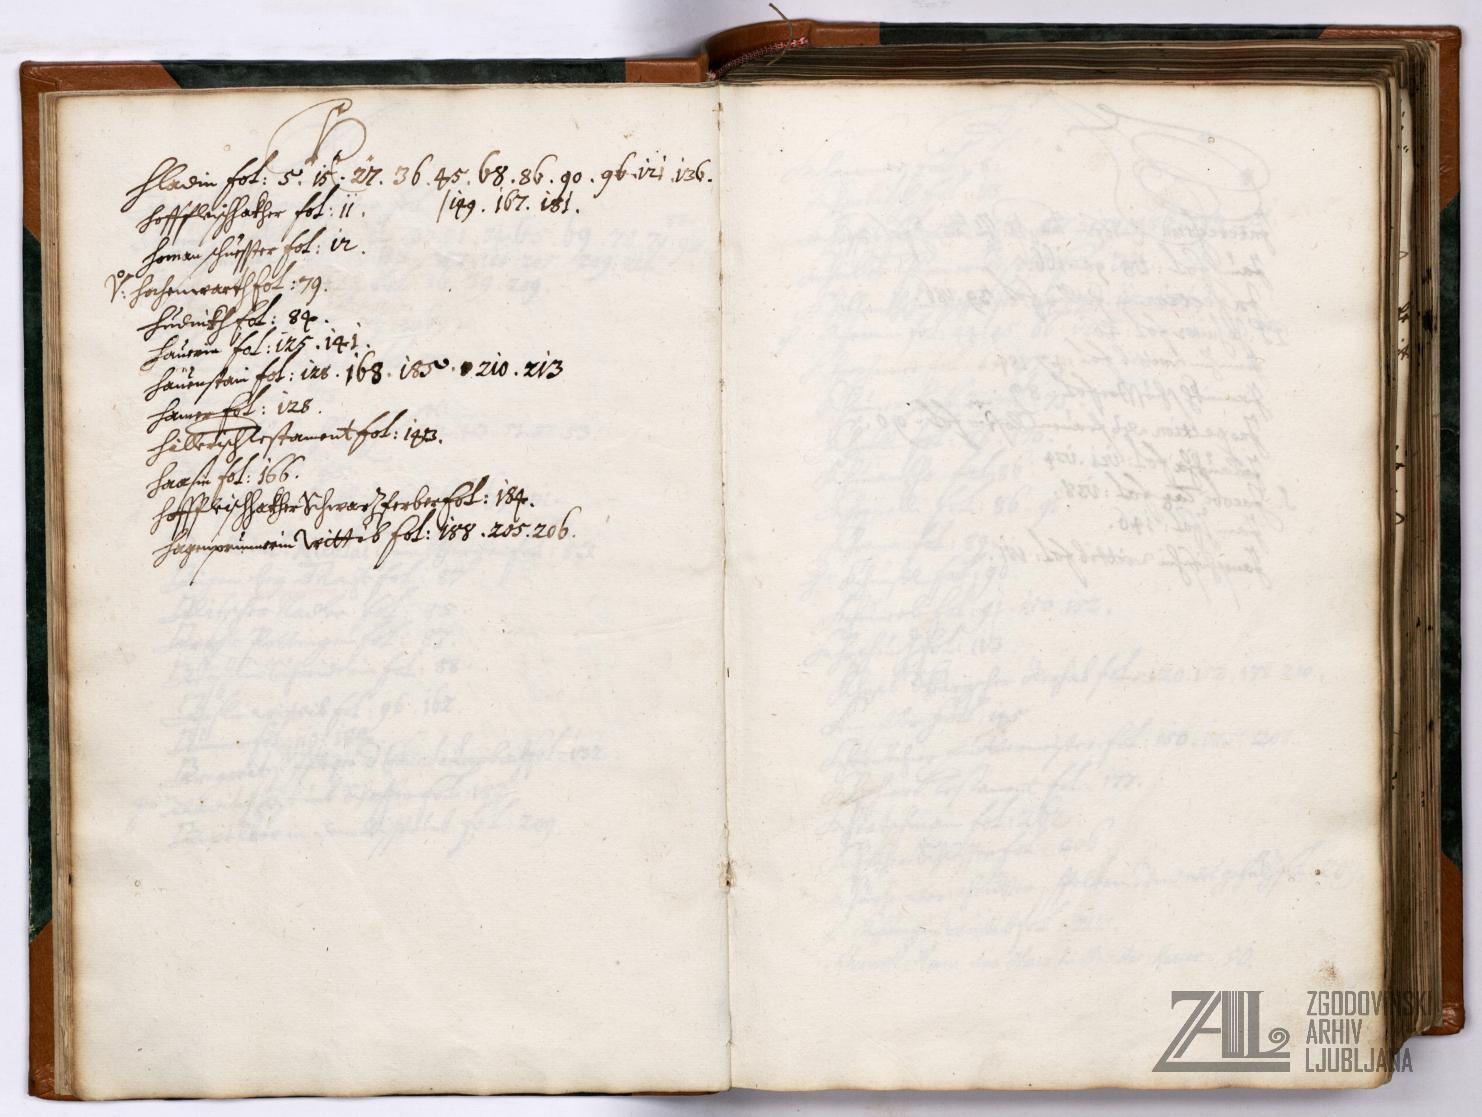 H
Hladin fol: 5. 15. 27. 36. 45. 68. 86. 90. 96. 121. 136.
/149. 167. 181.
Hoffleischhakher fol: 11.
Homan schuester fol: 12.
V: Hochenwarth fol: 79.
Hudnikh fol: 84.
Hauerin fol: 125. 141.
Hauenstain fol: 128. 168. 185. 210. 213
Hamer fol: 128.
Hillerisch Testament fol: 143.
Haasin fol: 166.
Hoffleischhakher Schwarzferber fol: 184.
Hagenprunnerin Wittib fol: 188. 205. 206.
ZAL ZGODOVINSKI
ARHIV
LJUBLJANA